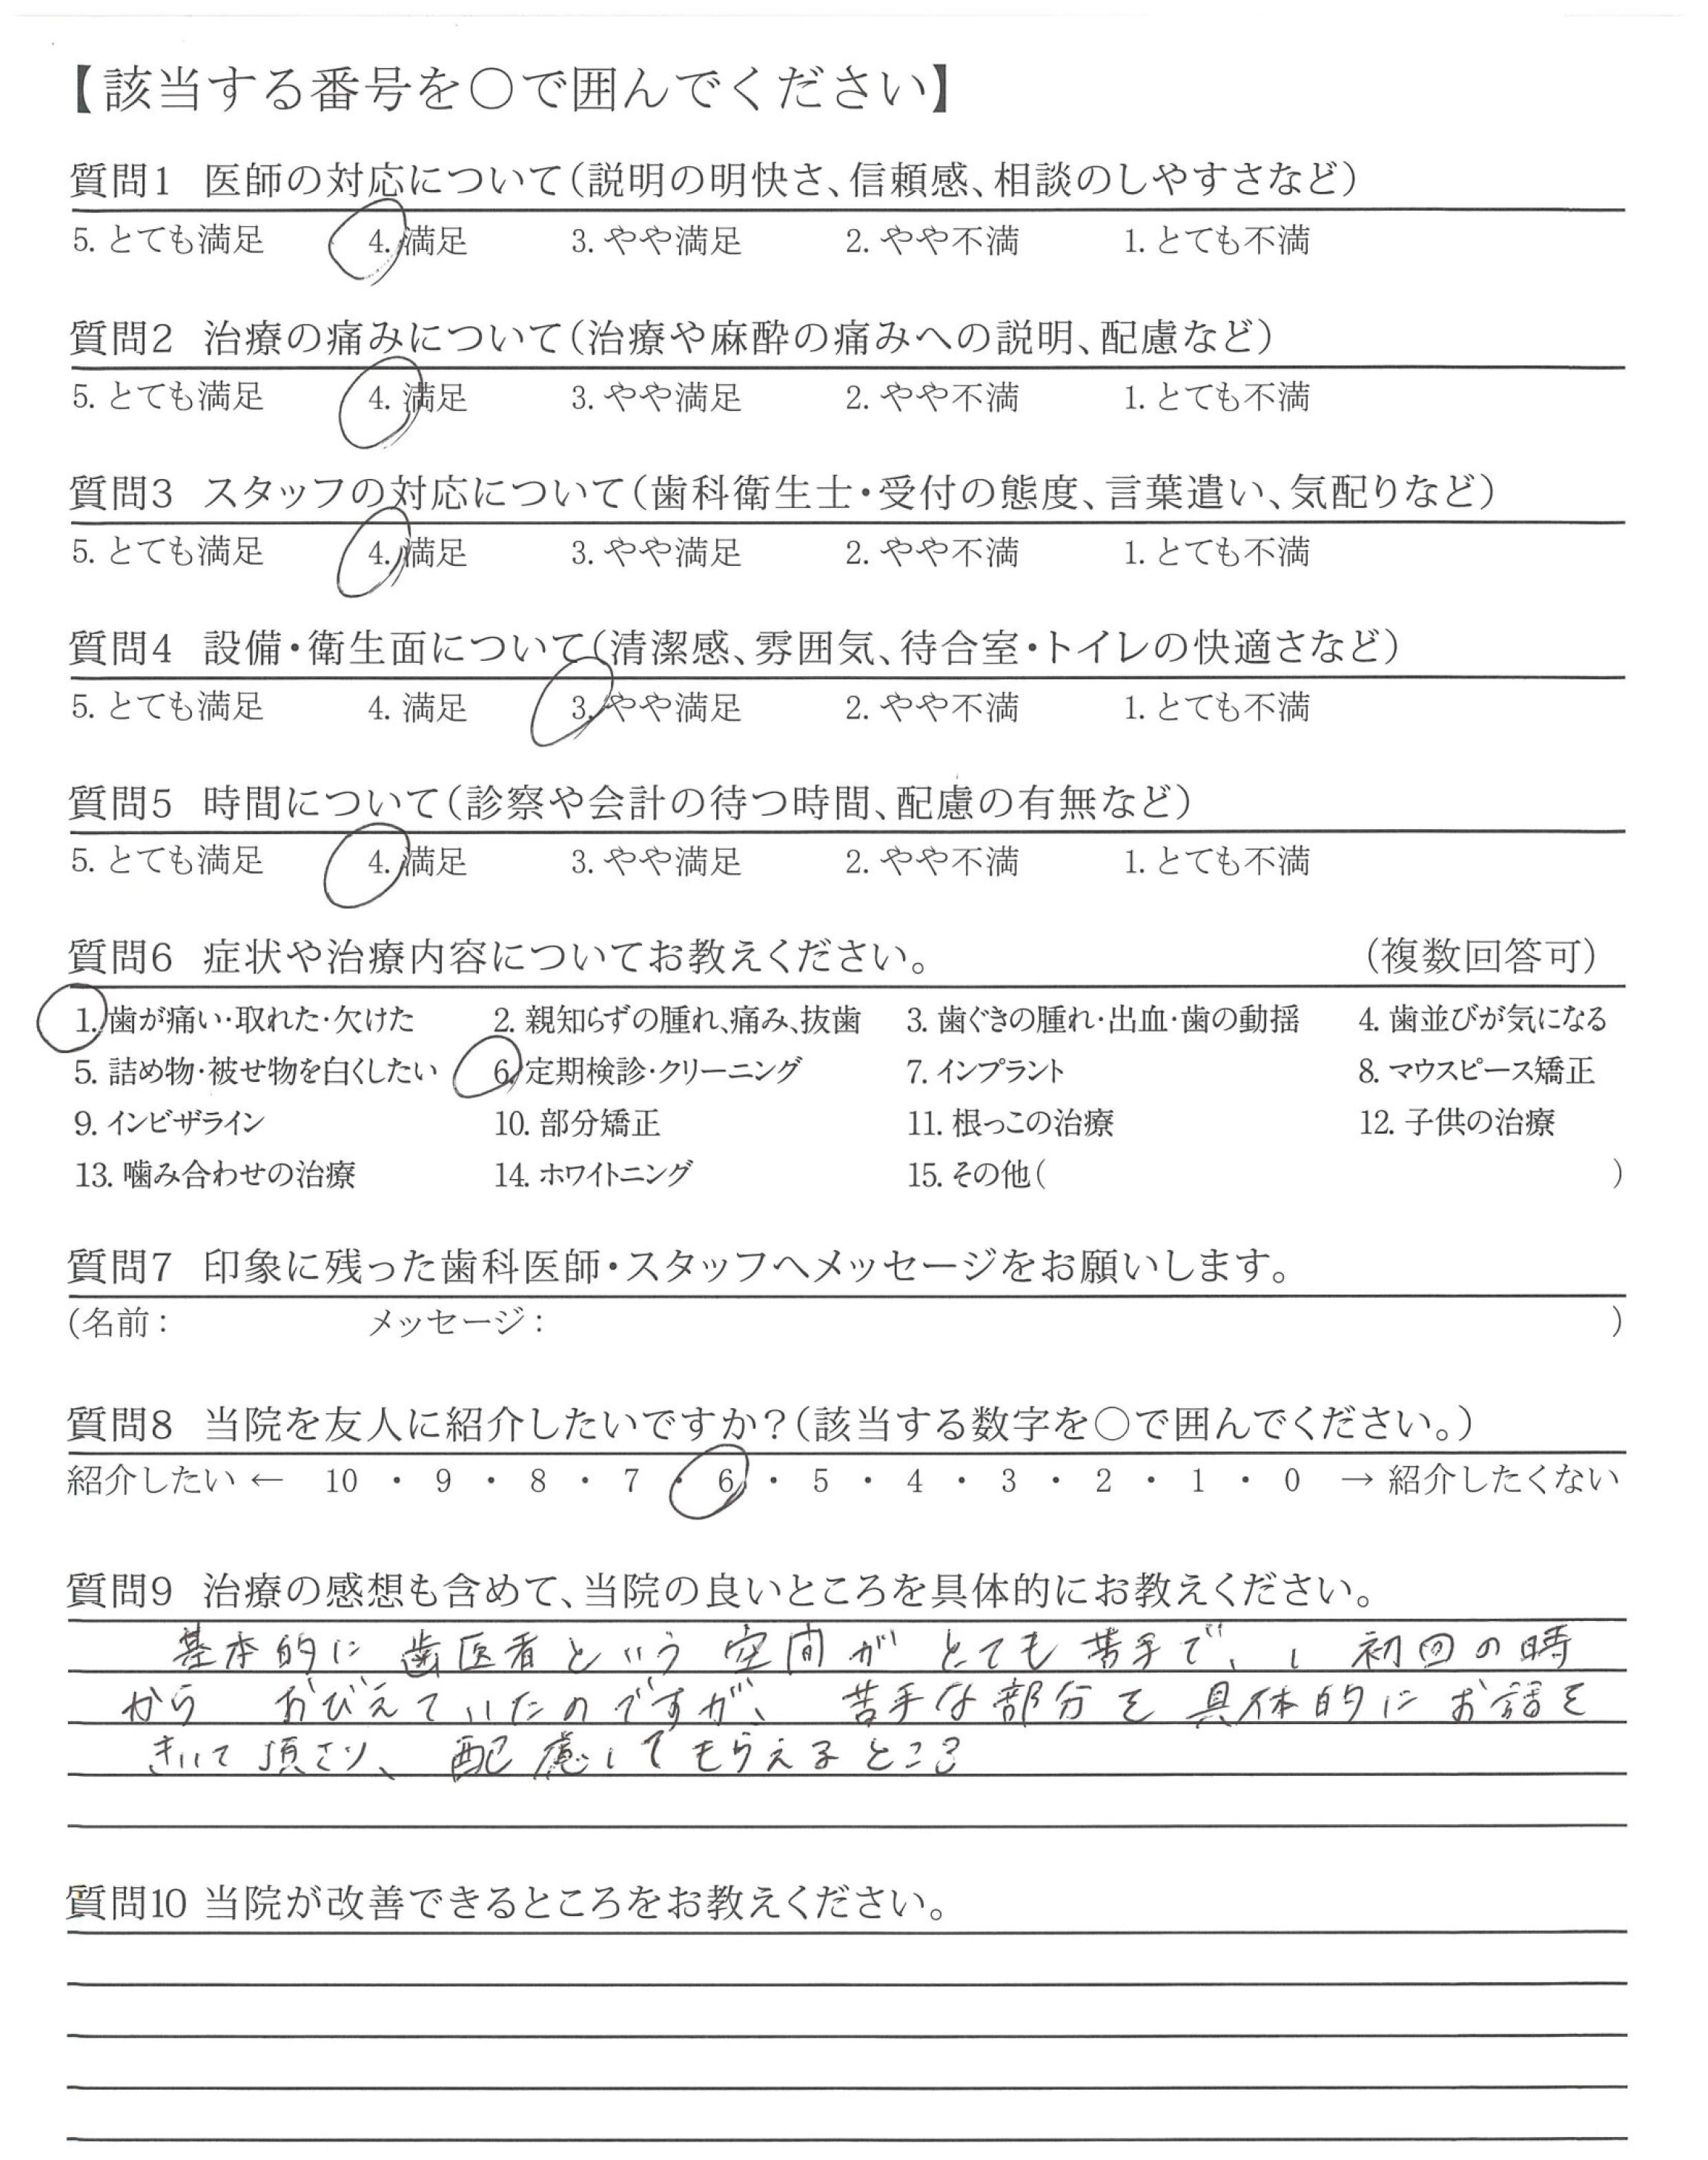 【該当する番号を○で囲んでください】
質問1 医師の対応について(説明の明快さ、信頼感、相談のしやすさなど)
5. とても満足 4. 満足 3. やや満足 2. やや不満 1. とても不満
質問2 治療の痛みについて(治療や麻酔の痛みへの説明、配慮など)
5. とても満足 4. 満足 3. やや満足 2. やや不満 1. とても不満
質問3 スタッフの対応について(歯科衛生士・受付の態度、言葉遣い、気配りなど)
5. とても満足 4. 満足 3. やや満足 2. やや不満 1. とても不満
質問4 設備・衛生面について(清潔感、雰囲気、待合室・トイレの快適さなど)
5. とても満足 4. 満足 3. やや満足 2. やや不満 1. とても不満
質問5 時間について(診察や会計の待つ時間、配慮の有無など)
5. とても満足 4. 満足 3. やや満足 2. やや不満 1. とても不満
質問6 症状や治療内容についてお教えください。 (複数回答可)
1. 歯が痛い・取れた・欠けた 2. 親知らずの腫れ、痛み、抜歯 3. 歯ぐきの腫れ・出血・歯の動揺 4. 歯並びが気になる
5. 詰め物・被せ物を白くしたい 6. 定期検診・クリーニング 7. インプラント 8. マウスピース矯正
9. インビザライン 10. 部分矯正 11. 根っこの治療 12. 子供の治療
13. 噛み合わせの治療 14. ホワイトニング 15. その他( )
質問7 印象に残った歯科医師・スタッフへメッセージをお願いします。
(名前: メッセージ: )
質問8 当院を友人に紹介したいですか?(該当する数字を○で囲んでください。)
紹介したい ← 10 ・ 9 ・ 8 ・ 7 ・ 6 ・ 5 ・ 4 ・ 3 ・ 2 ・ 1 ・ 0 → 紹介したくない
質問9 治療の感想も含めて、当院の良いところを具体的にお教えください。
基本的に歯医者という空間がとても苦手で、初回の時
から おびえていたのですが、苦手な部分を具体的にお話を
きいて頂き、配慮してもらえるところ
質問10 当院が改善できるところをお教えください。